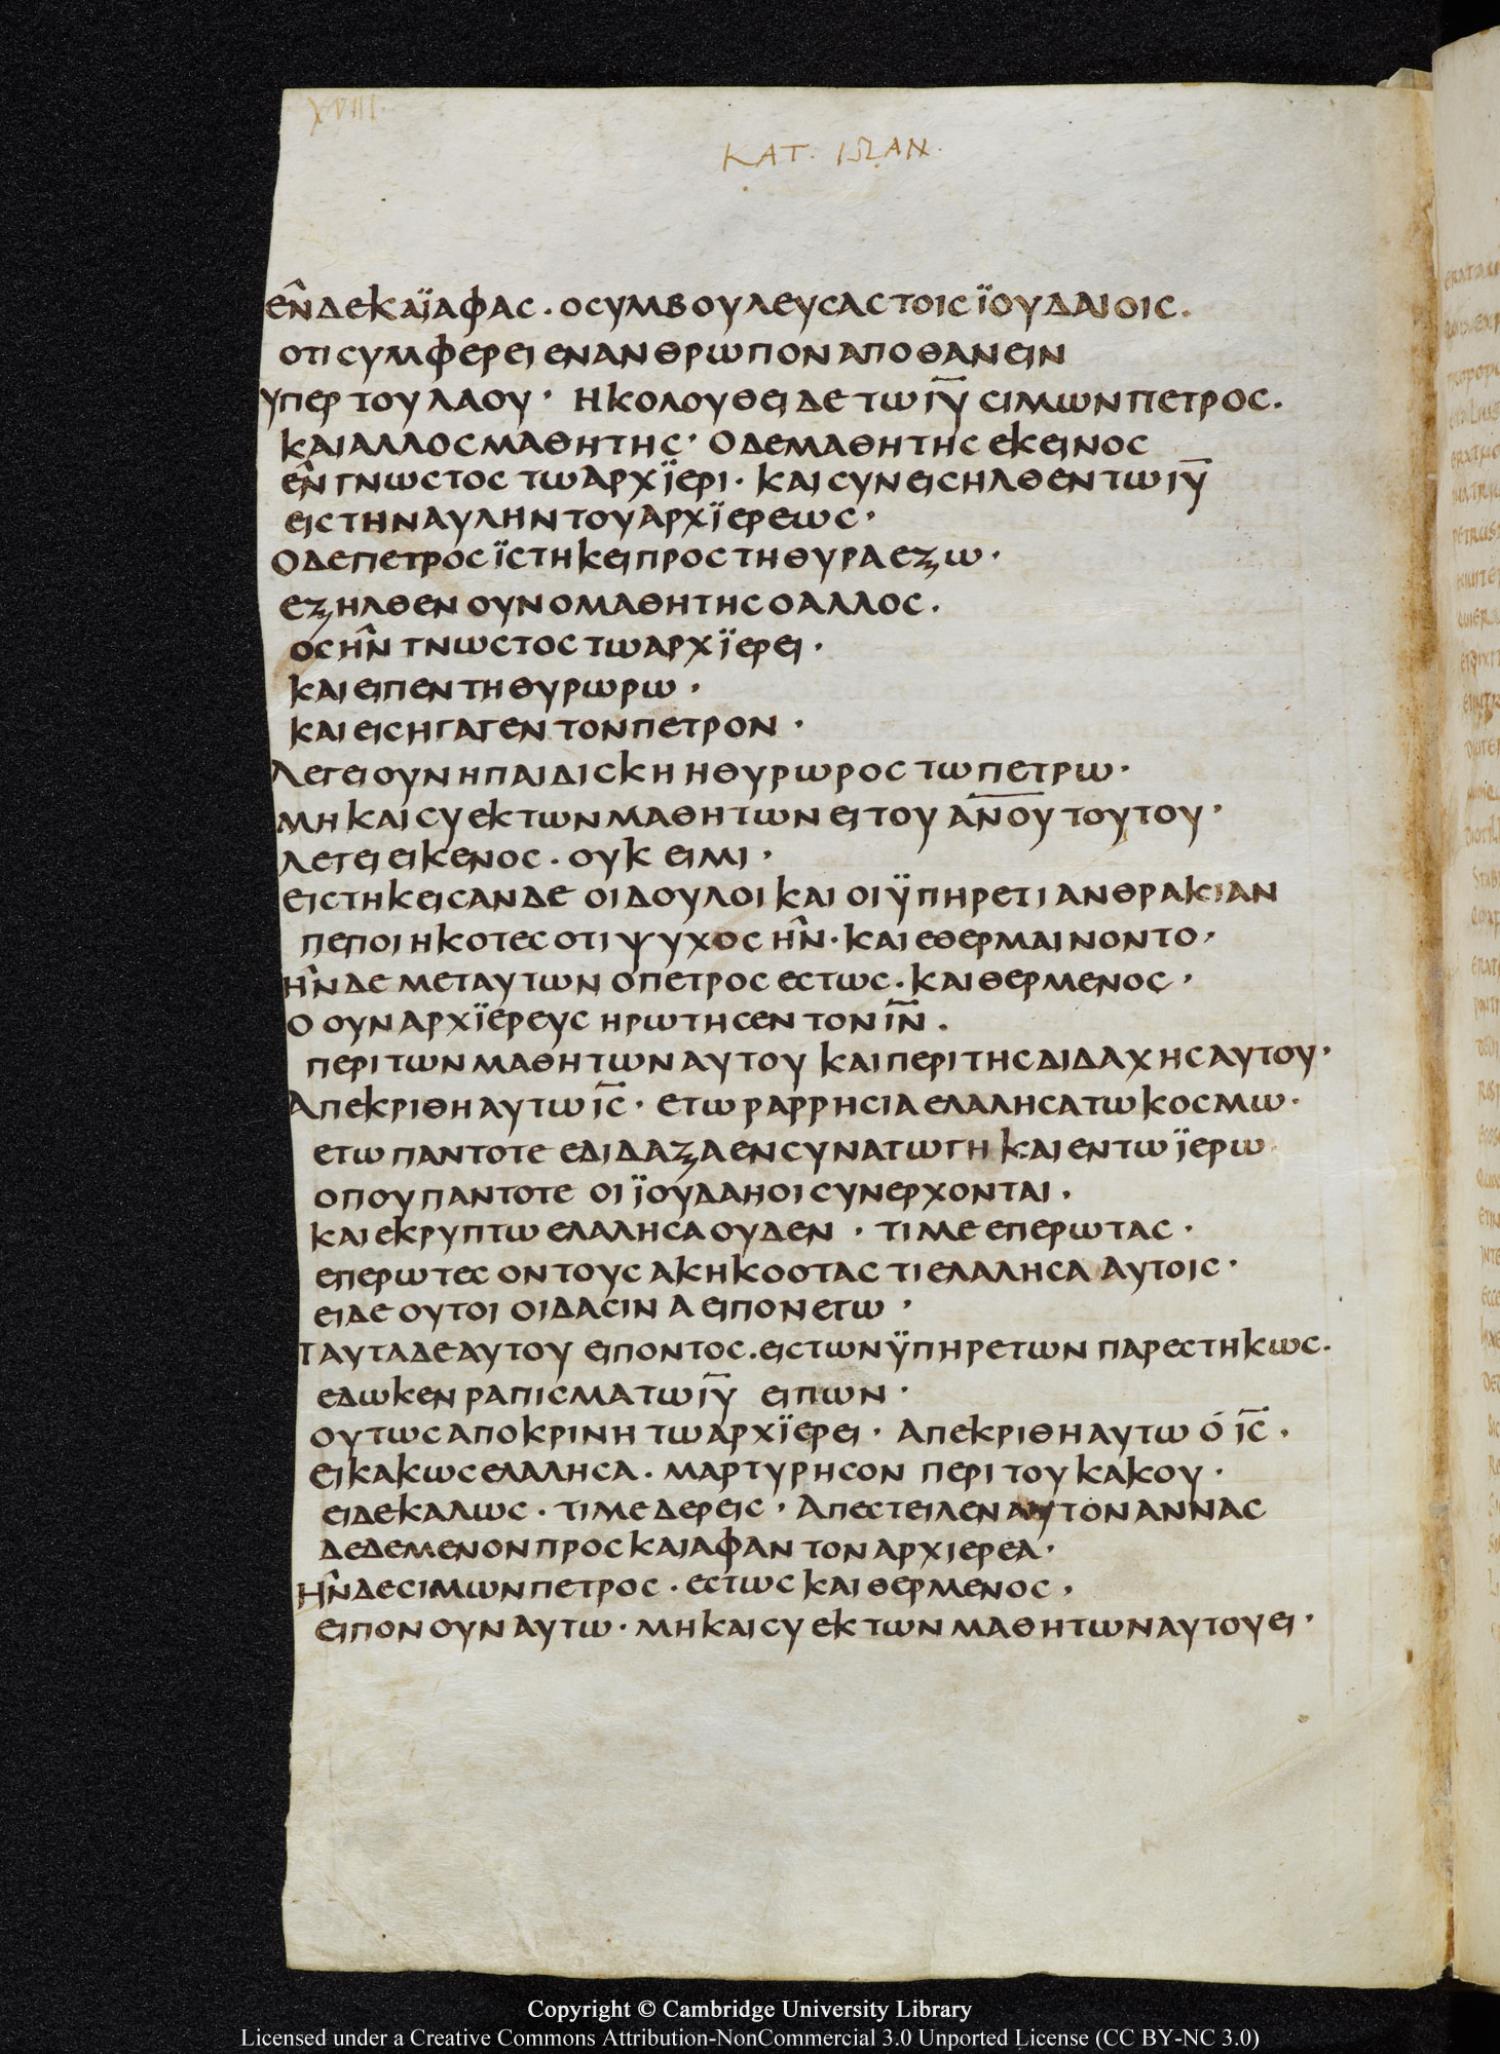 XVIII.
ΚΑΤ. ΙΩΑΝ.
εν̂δεκαϊαφας·οσυμβουλευσαστοισϊουδαιοις.
οτισυμφερειενανθρωπον αποθανειν
υπερ τουλαου· Ηκολουθειδε τωιῡ σιμωνπετρος.
καιαλλοσμαθητης· Οδεμαθητης εκεινος
εν̂γνωστος τωαρχϊερι· και συνεισηλθεντωιῡ
εις τηναυληντουαρχϊερεως·
οδεπετρος ϊστηκειπρος τηθυραεξω·
εξηλθεν ουνομαθητησοαλλος.
οσην̂ γνωστος τωαρχϊερει·
και ειπεν τηθυρωρω·
και εισηγαγεν τονπετρον·
λεγειουνηπαιδισκη ηθυρωρος τωπετρω·
μη και συ εκτωνμαθητων ειτου αν̅ο̅υ̅ τουτου·
λεγει εικενος· ουκ ειμι·
ειστηκεισανδε οιδουλοι και οιϋπηρετι ανθρακιαν
πεποιηκοτεσοτι ψυχος ην̂·και εθερμαινοντο·
ην̂δε μεταυτων οπετρος εστως·και θερμενος·
ο ουναρχϊερευς ηρωτησεν τονῑν̄.
περιτωνμαθητωναυτου καιπεριτησδιδαχησαυτου·
Απεκριθηαυτωῑς̄· εγω ραρρησιαελαλησατωκοσμω·
εγω παντοτε εδιδαξαενσυναγωγη και εντωϊερω
οπουπαντοτε οι ϊουδαηοισυνερχονται.
και εκρυπτωελαλησαουδεν · τιμεεπερωτας·
επερωτες οντους ακηκοοτας τιελαλησα αυτοις·
ειδε ουτοι οιδασιν α ειπονεγω·
ταυταδεαυτου ειποντος.ειστωνϋπηρετων παρεστηκως.
εδωκεν ραπισματωιῡ ειπων·
ουτωσαποκρινη τωαρχϊερει· Απεκριθηαυτω ο ῑς̄·
εικακωσελαλησα· μαρτυρησον περιτουκακου·
ειδεκαλως· τιμεδερεις· Απεστειλεναυτονάννας
δεδεμενονπρος καιαφαν τοναρχιερεα·
Ην̂δεσιμωνπετρος· εστως και θερμενος·
ειπονουναυτω· μηκαισυ εκτωνμαθητωναυτουει·
Copyright © Cambridge University Library
Licensed under a Creative Commons Attribution-NonCommercial 3.0 Unported License (CC BY-NC 3.0)